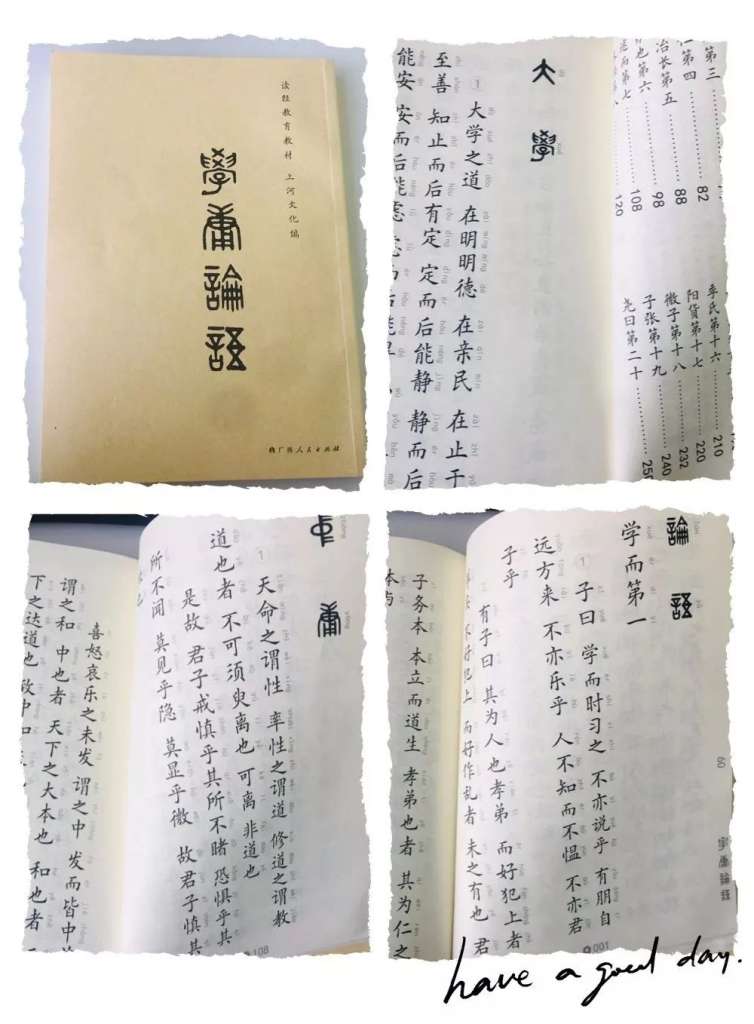 读经教育教材 上河文化编
學庸論語
广西人民出版社
第三 82
第四 88
冶长第五 98
也第六 108
而第七 120
季氏第十六 210
阳货第十七 220
微子第十八 232
子张第十九 240
尧曰第二十 250
大學
① 大学之道 在明明德 在亲民 在止于
至善 知止而后有定 定而后能静 静而后
能安 安而后能虑
中庸
① 天命之谓性 率性之谓道 修道之谓教
道也者 不可须臾离也 可离 非道也
是故 君子戒慎乎其所不睹 恐惧乎其
所不闻 莫见乎隐 莫显乎微 故君子慎其
喜怒哀乐之未发 谓之中 发而皆中
谓之和 中也者 天下之大本也 和也者
下之达道也 致中和
論語
学而第一
① 子曰 学而时习之 不亦说乎 有朋自
远方来 不亦乐乎 人不知而不愠 不亦君
子乎
有子曰 其为人也孝弟 而好犯上者
不好犯上 而好作乱者 未之有也 君
子务本 本立而道生 孝弟也者 其为仁之
本与
60
學庸論語
have a good day.